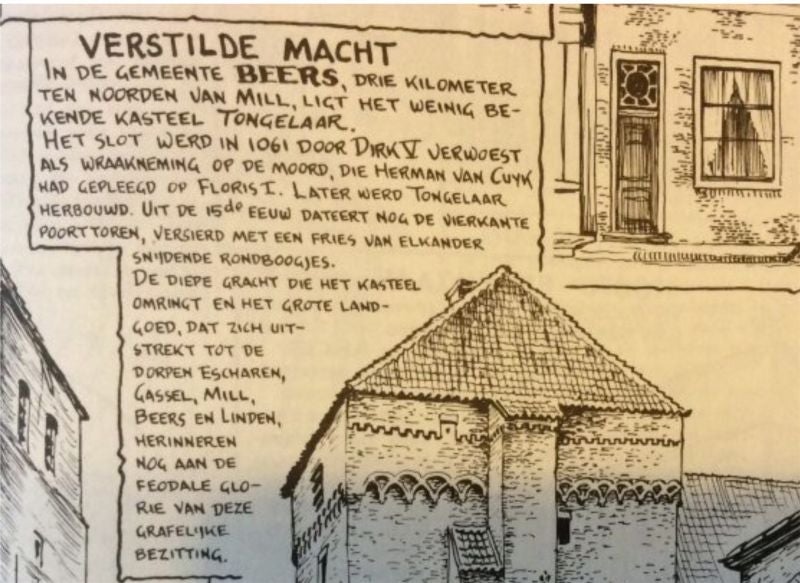 VERSTILDE MACHT
IN DE GEMEENTE BEERS, DRIE KILOMETER
TEN NOORDEN VAN MILL, LIGT HET WEINIG BE-
KENDE KASTEEL TONGELAAR.
HET SLOT WERD IN 1061 DOOR DIRK V VERWOEST
ALS WRAAKNEMING OP DE MOORD, DIE HERMAN VAN CUYK
HAD GEPLEEGD OP FLORIS I. LATER WERD TONGELAAR
HERBOUWD. UIT DE 15de EEUW DATEERT NOG DE VIERKANTE
POORTTOREN, VERSIERD MET EEN FRIES VAN ELKANDER
SNIJDENDE RONDBOOGJES.
DE DIEPE GRACHT DIE HET KASTEEL
OMRINGT EN HET GROTE LAND-
GOED, DAT ZICH UIT-
STREKT TOT DE
DORPEN ESCHAREN,
GASSEL, MILL,
BEERS EN LINDEN,
HERINNEREN
NOG AAN DE
FEODALE GLO-
RIE VAN DEZE
GRAFELIJKE
BEZITTING.